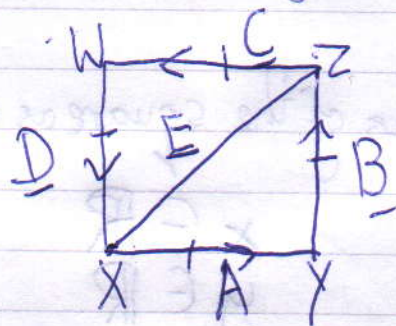 W C Z
D E B
X A Y